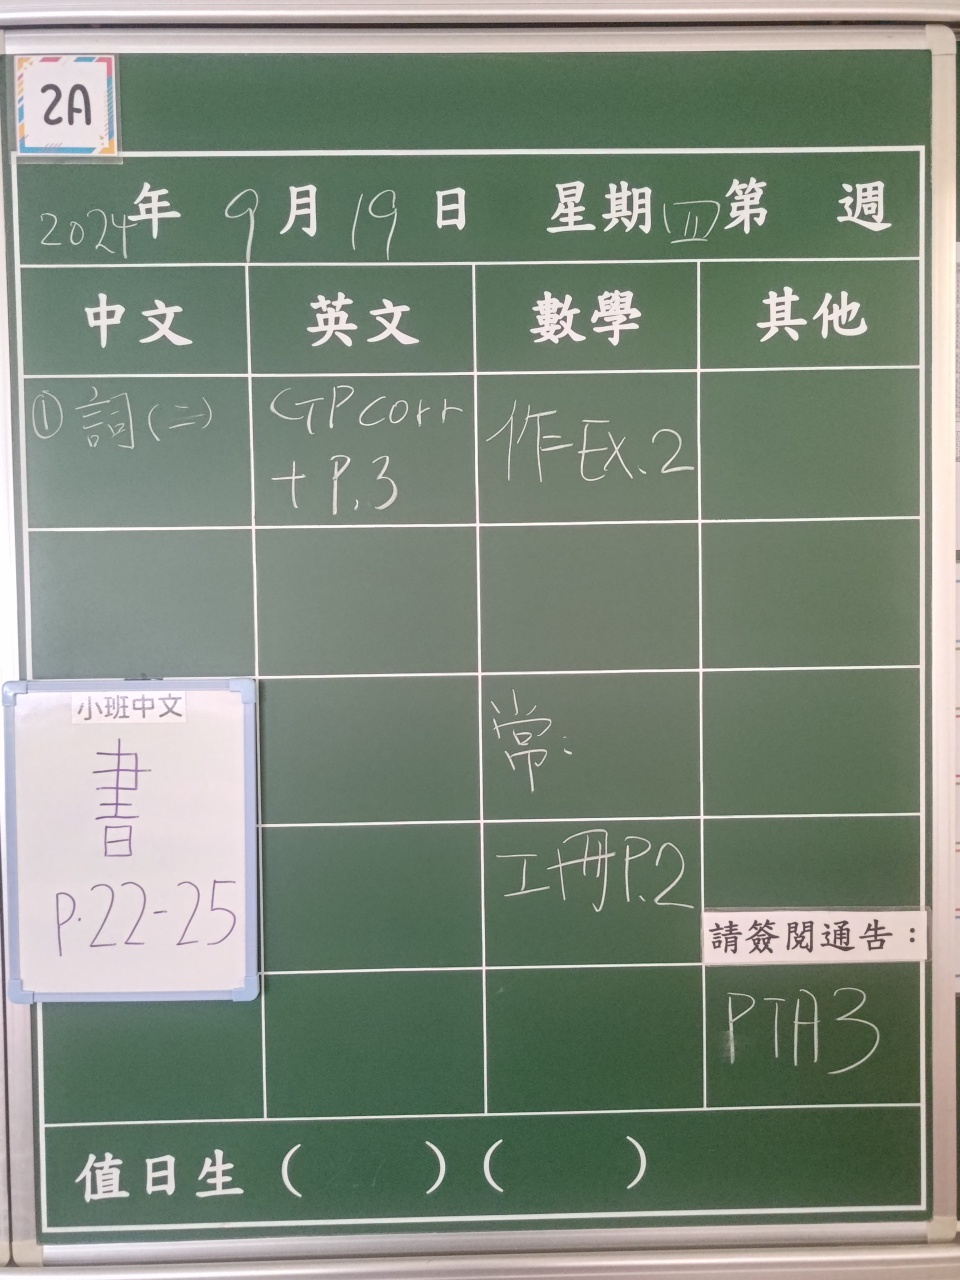 2A
2024年 9月 19日 星期(四) 第 週
中文 英文 數學 其他
①詞(二)
GP corr
+ P.3
作=Ex.2
小班中文
書
P.22-25
常:
工冊P.2
請簽閱通告:
PTA3
值日生 ( ) ( )